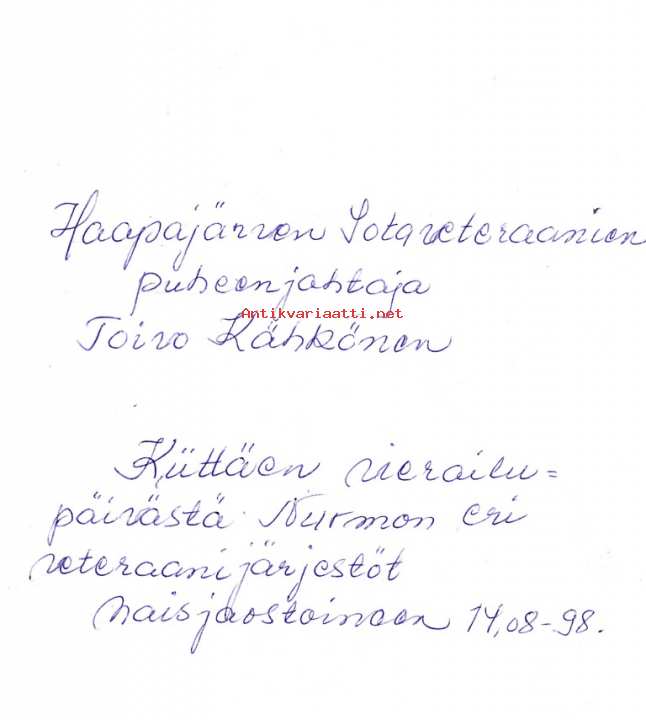 Haapajärven Sotaveteraanien
puheenjohtaja
Antikvariaatti.net
Toivo Kähkönen
Kiittäen vierailu=
päivästä Nurmon eri
veteraanijärjestöt
naisjaostoineen 14,08-98.